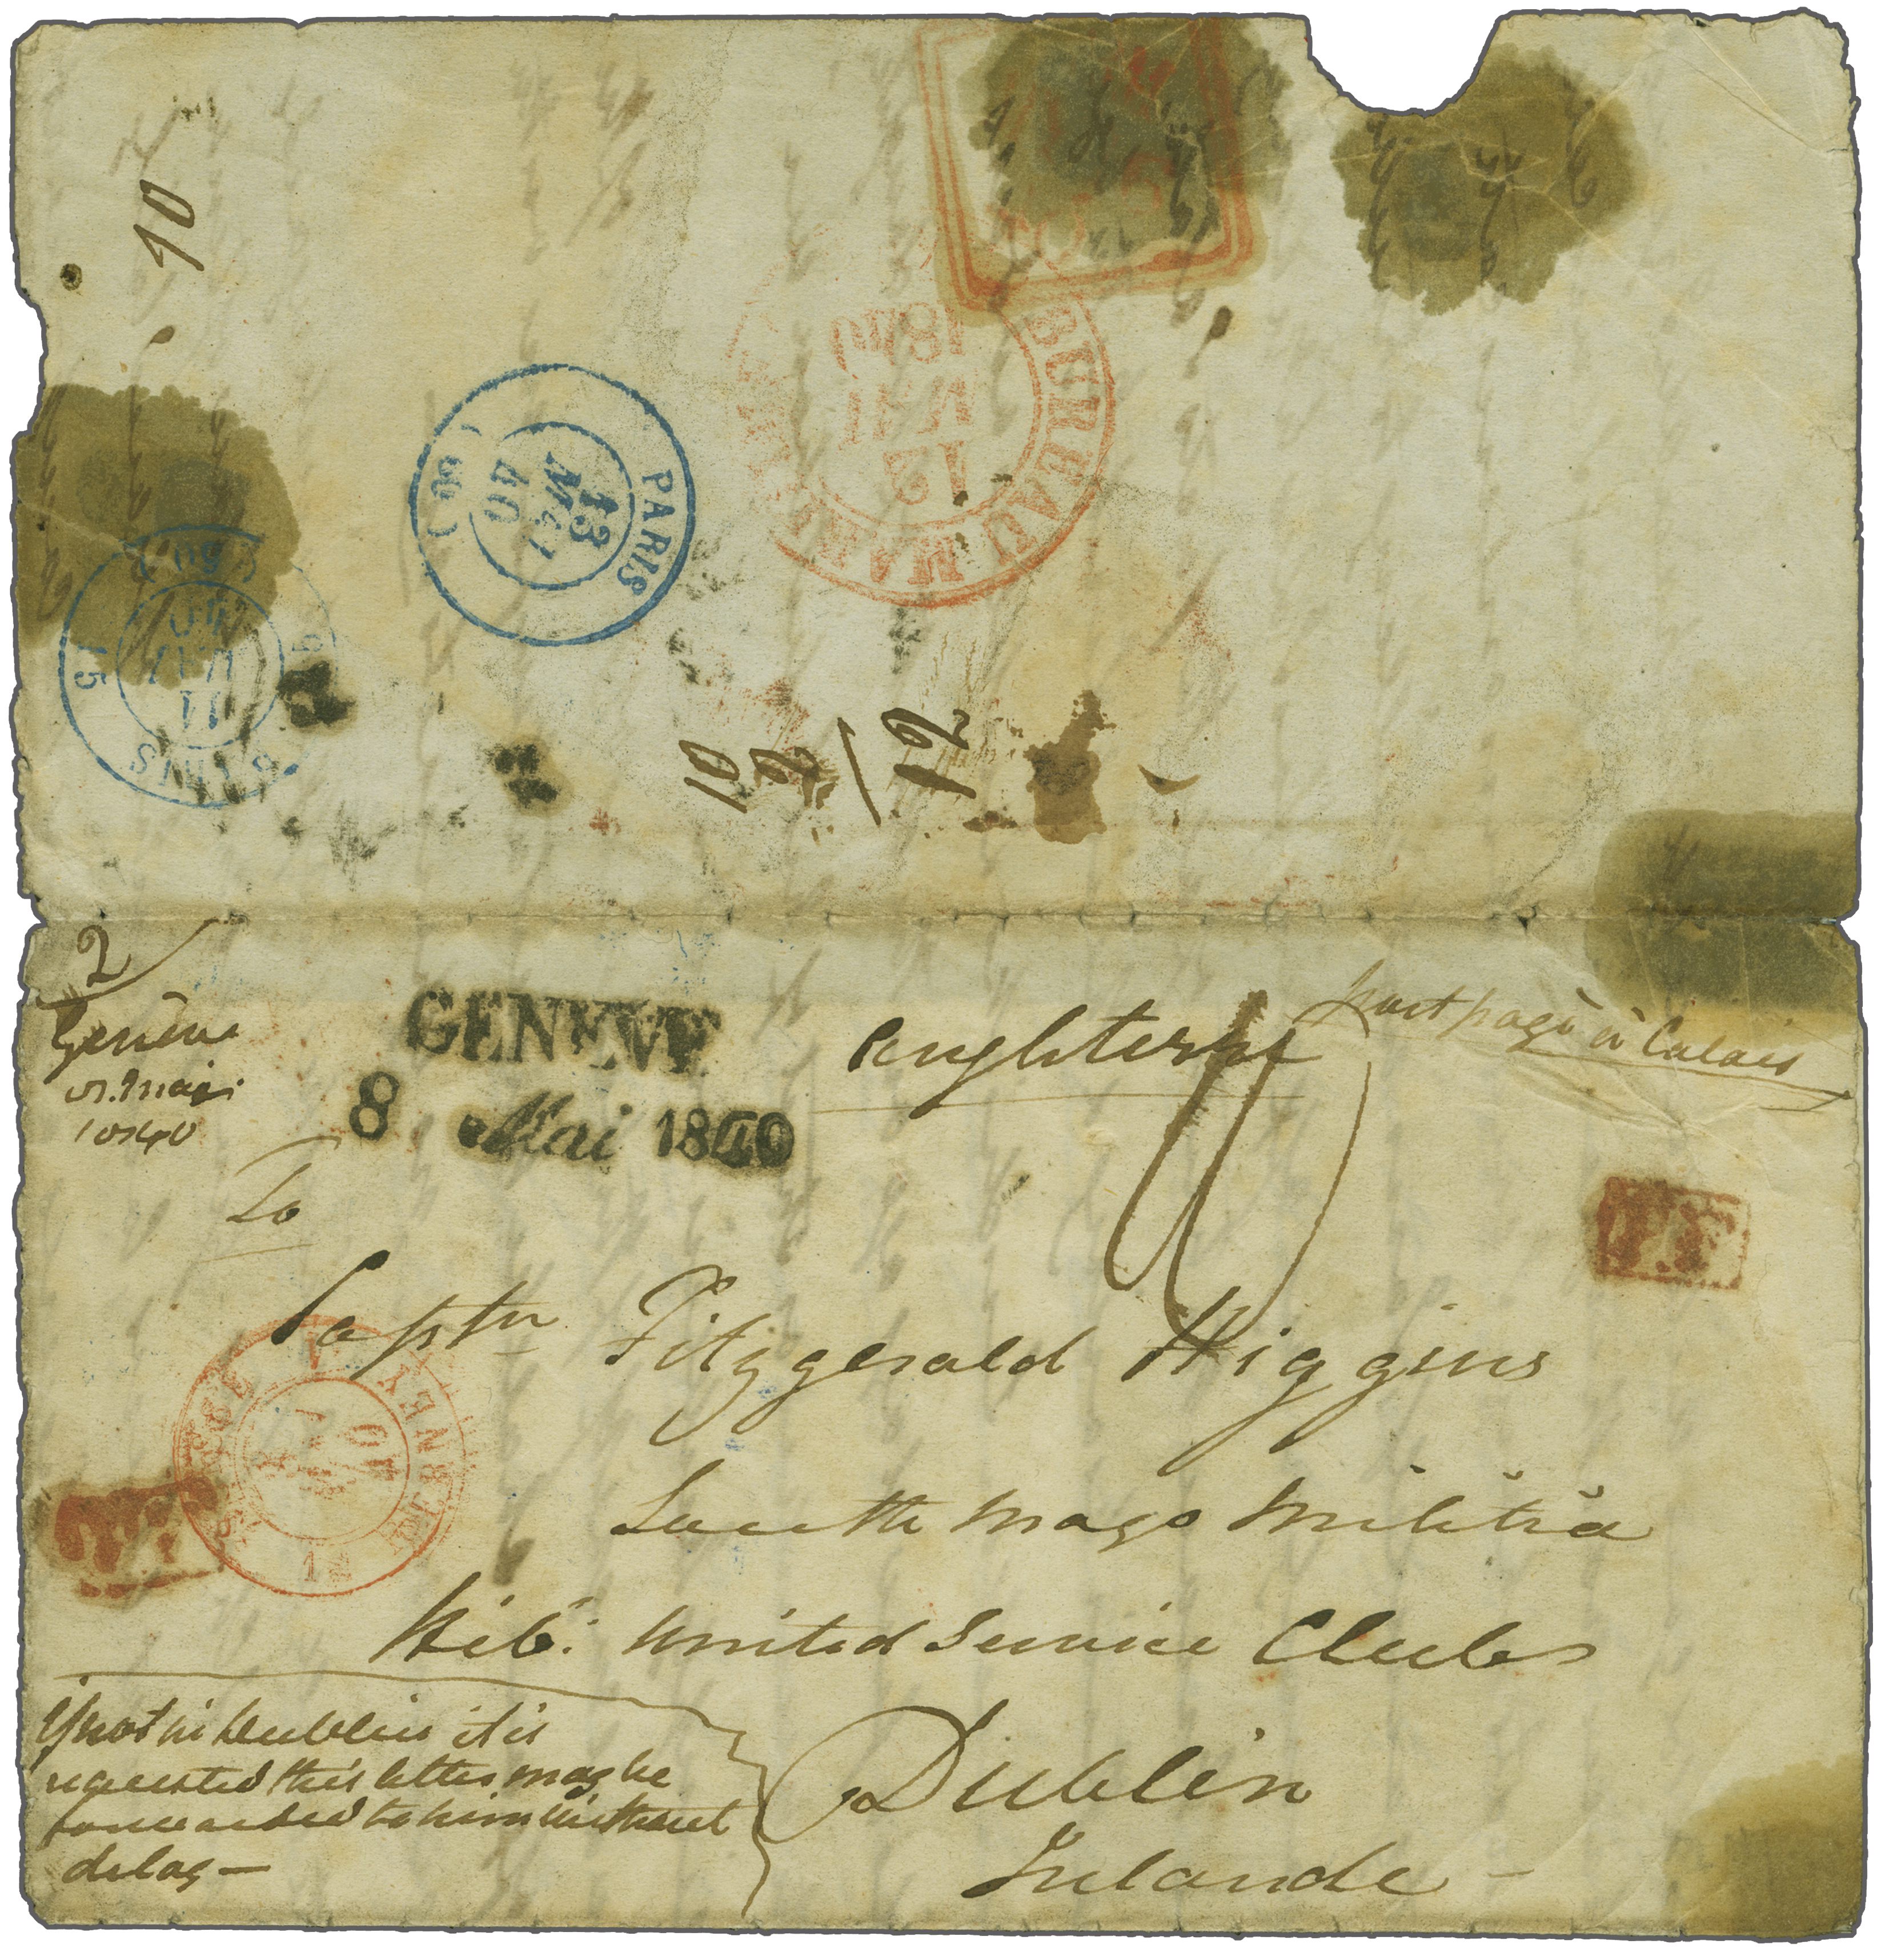 10
BUREAU MARITIME
12
MAI
1840
PARIS
13
MAI
40
(60)
PARIS
11
MAI
40
(60)
10
2
12
2
Genève
8 mai
1840
GENEVE
8 Mai 1840
Angleterre
port payé à Calais
To
P.F.
Captn Fitzgerald Higgins
South Mayo Militia
Hib: United Service Club
Dublin
Irlande
SUISSE
FERNEY
40
12
If not in Dublin it is
requested this letter may be
forwarded to him without
delay